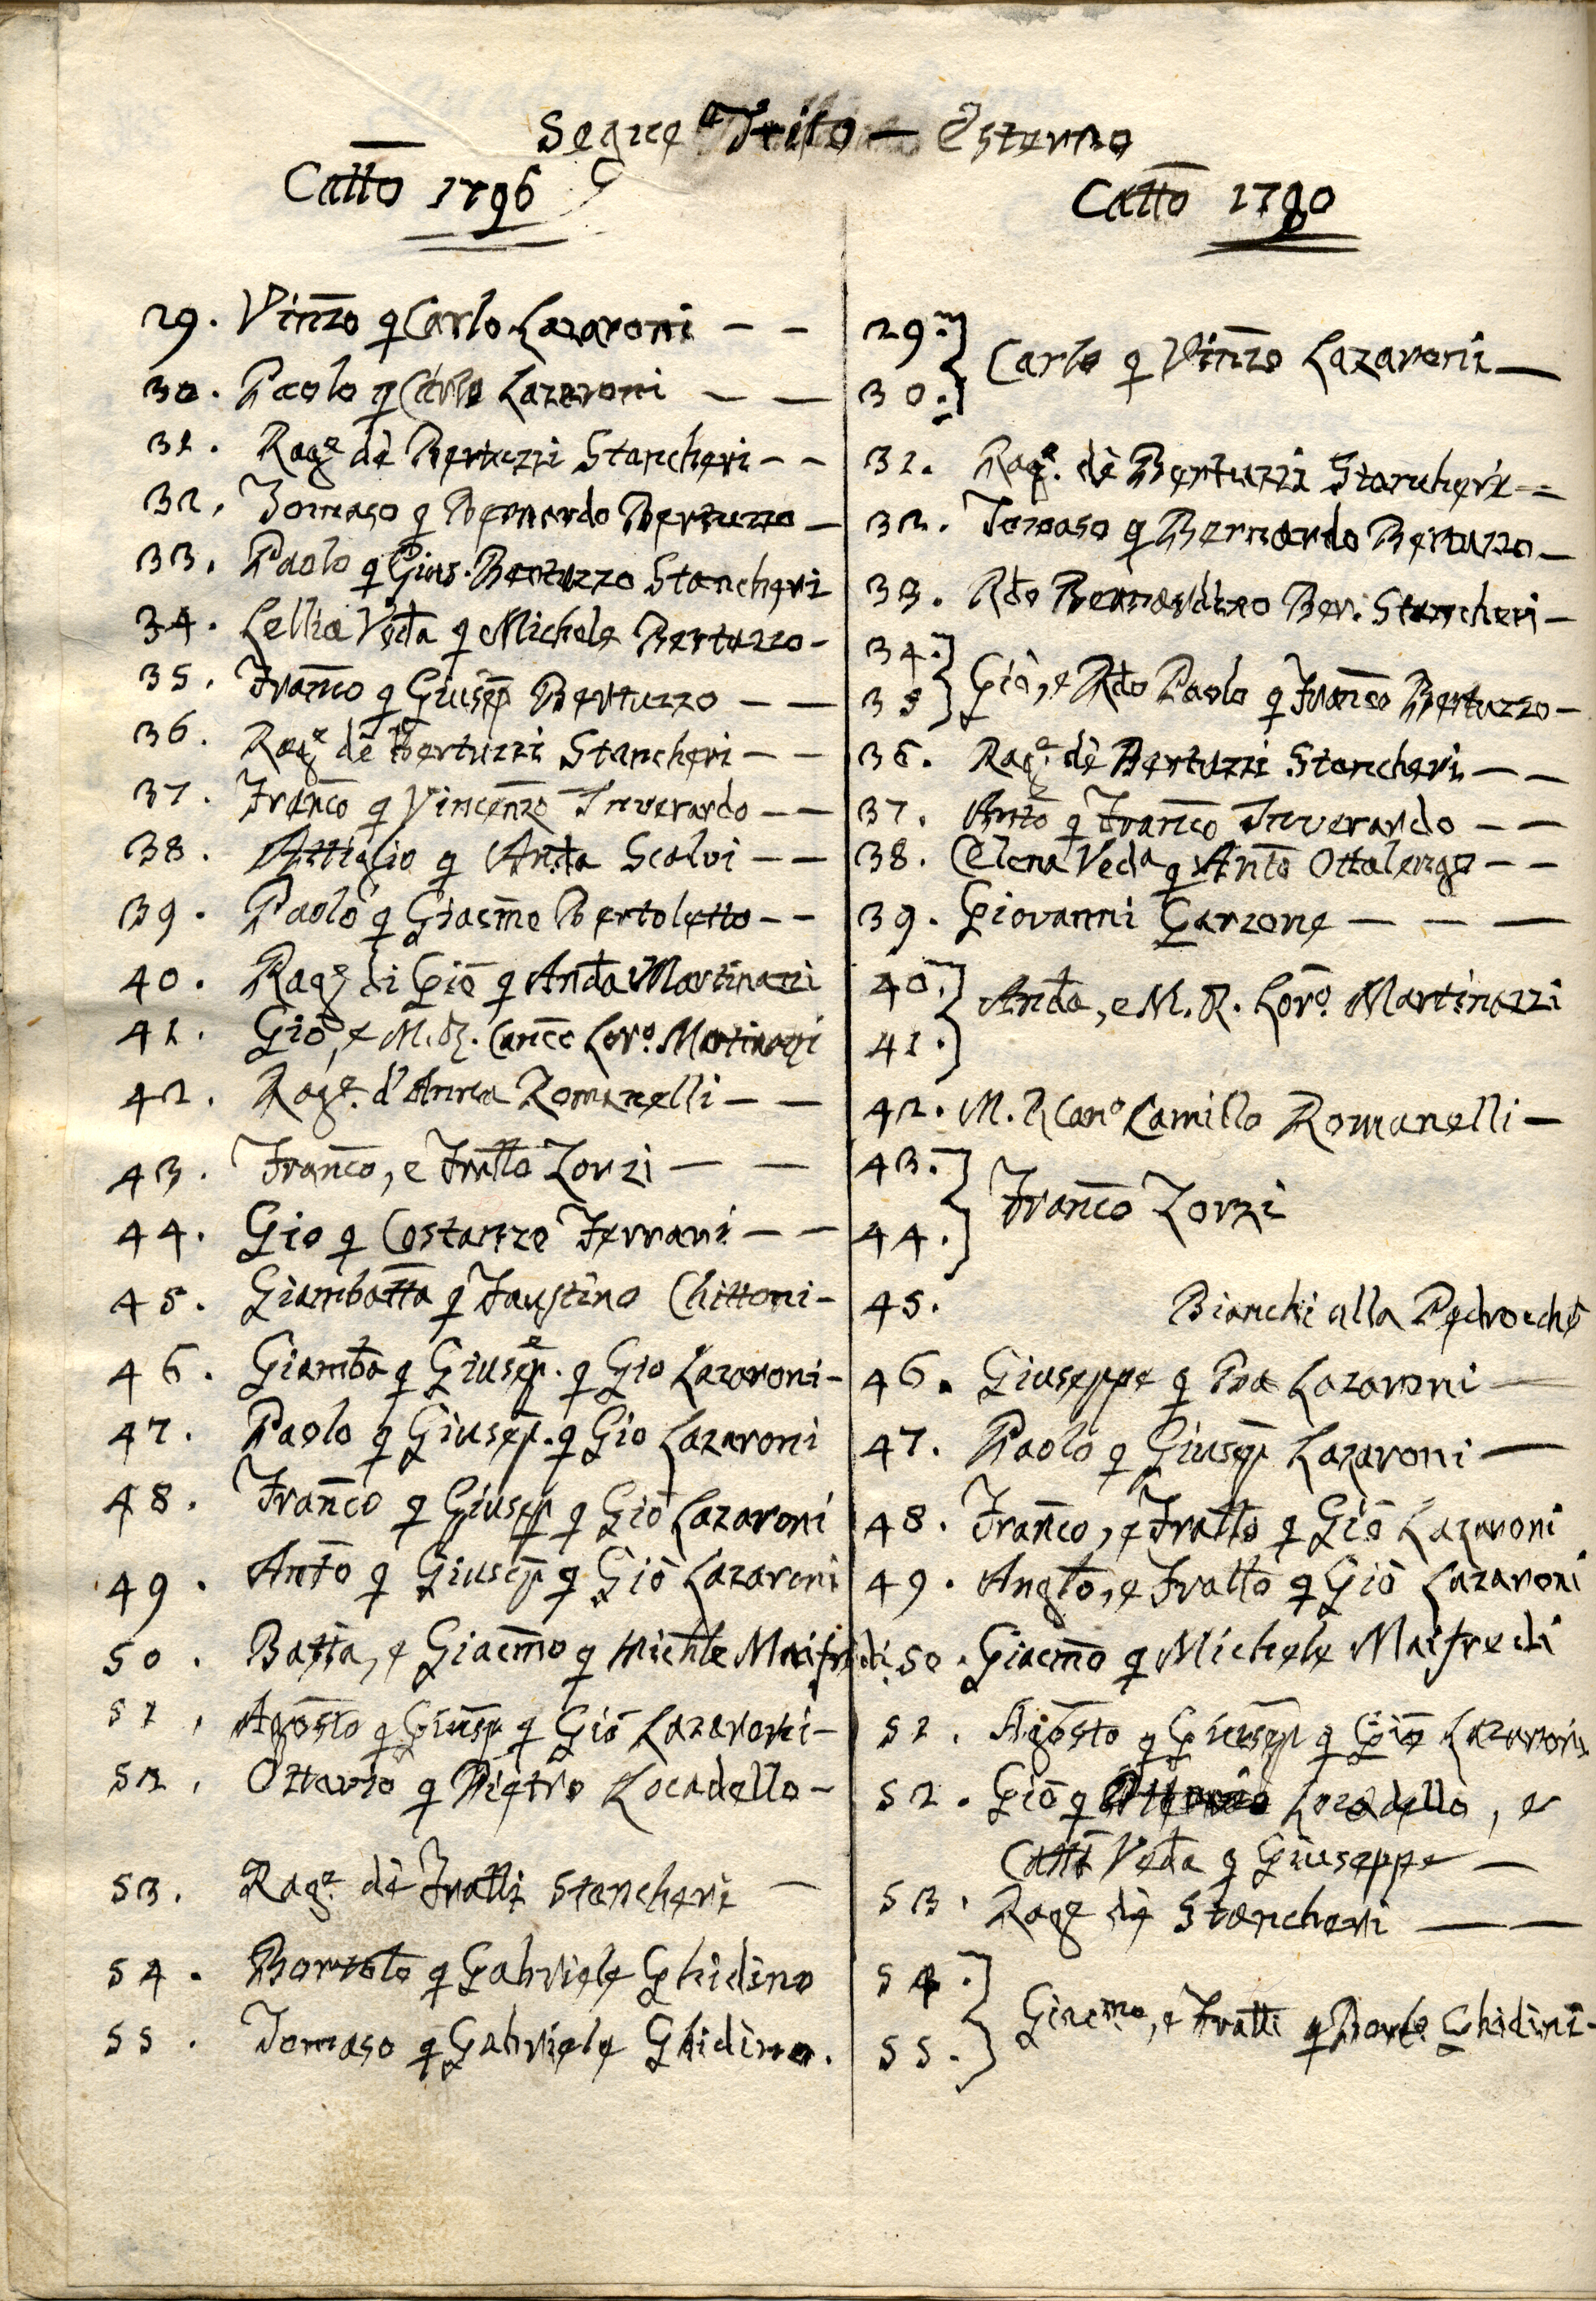 Segue Trito — Esterno
Catto 1796
29. Vinzo q Carlo Lazaroni — —
30. Paolo q Carlo Lazaroni — —
31. Rage de Bertuzzi Stancheri — —
32. Tomaso q Bernardo Bertuzzo —
33. Paolo q Gius. Bertuzzo Stancheri
34. Lellia Veda q Michele Bertuzzo —
35. Franco q Giusep Bertuzzo — —
36. Rage de Bertuzzi Stancheri — —
37. Franco q Vincenzo Inverardo — —
38. Attiglio q Anda Scalvi — —
39. Paolo q Giacmo Bertoletto — —
40. Rage di Gio q Anda Martinazzi
41. Gio, e M. R. Canco Loro. Martinazzi
42. Rage. d'Anna Romanelli — —
43. Franco, e Fratto Zorzi — —
44. Gio q Costanzo Ferrari — —
45. Giambatta q Faustino Chittoni —
46. Giamba q Giusepe. q Gio Lazaroni —
47. Paolo q Giusep. q Gio Lazaroni
48. Franco q Giusep q Gio Lazaroni
49. Anto q Giusep q Gio Lazaroni
50. Batta, e Giacmo q Michele Maifredi
51. Agosto q Giusep q Gio Lazaroni —
52. Ottavio q Pietro Locadello —
53. Rage. de Fratti Stancheri —
54. Bortolo q Gabriele Ghidino
55. Tomaso q Gabriele Ghidino.
Catto 1790
29.
30. } Carlo q Vinzo Lazaroni —
31. Rage. de Bertuzzi Stancheri =
32. Tomaso q Bernardo Bertuzzo —
33. Rdo Bernardino Ber. Stancheri —
34.
35 } Gio, e Rdo Paolo q Franco Bertuzzo —
36. Rage. de Bertuzzi Stancheri — —
37. Anto q Franco Inverardo — —
38. Elena Veda q Anto Ottalengo — —
39. Giovanni Garzone — — —
40.
41. } Anda, e M. R. Loro. Martinazzi
42. M. R Cano Camillo Romanelli —
43.
44. } Franco Zorzi
45. Bianchi alla Pedrocche
46. Giuseppe q Pra Lazaroni —
47. Paolo q Giusep Lazaroni —
48. Franco, e Fratto q Gio Lazaroni
49. Anglo, e Fratto q Gio Lazaroni
50. Giacmo q Michele Maifredi
51. Agosto q Giusep q Gio Lazaroni
52. Gio q Ottavio Locadello, e
Catt Veda q Giuseppe —
53. Rage de Stancheri — —
54.
55. } Giacmo, e Fratti q Borto Ghidini —